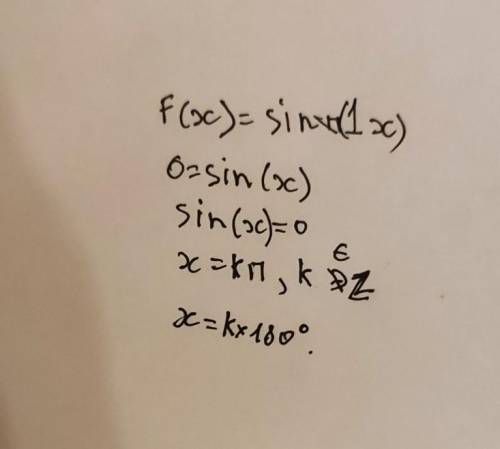 F(x)= sin(1x)
0=sin(x)
sin(x)=0
x=kπ, k ∈ Z
x=k×180°.